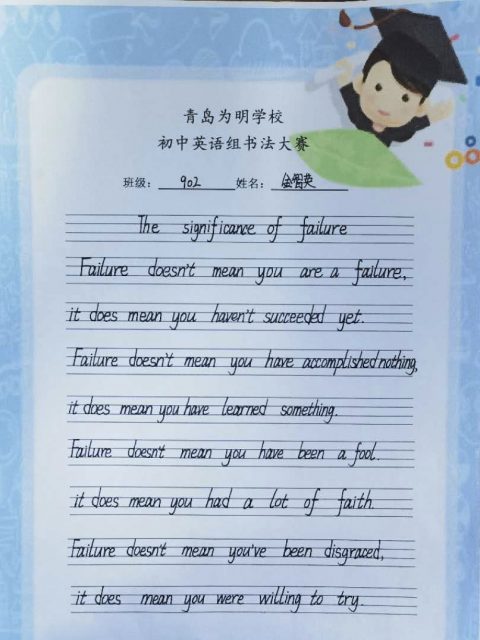 青岛为明学校
初中英语组书法大赛
班级： 902 姓名： 金智英
The significance of failure
Failure doesn't mean you are a failure,
it does mean you haven't succeeded yet.
Failure doesn't mean you have accomplished nothing,
it does mean you have learned something.
Failure doesn't mean you have been a fool.
it does mean you had a lot of faith.
Failure doesn't mean you've been disgraced,
it does mean you were willing to try.